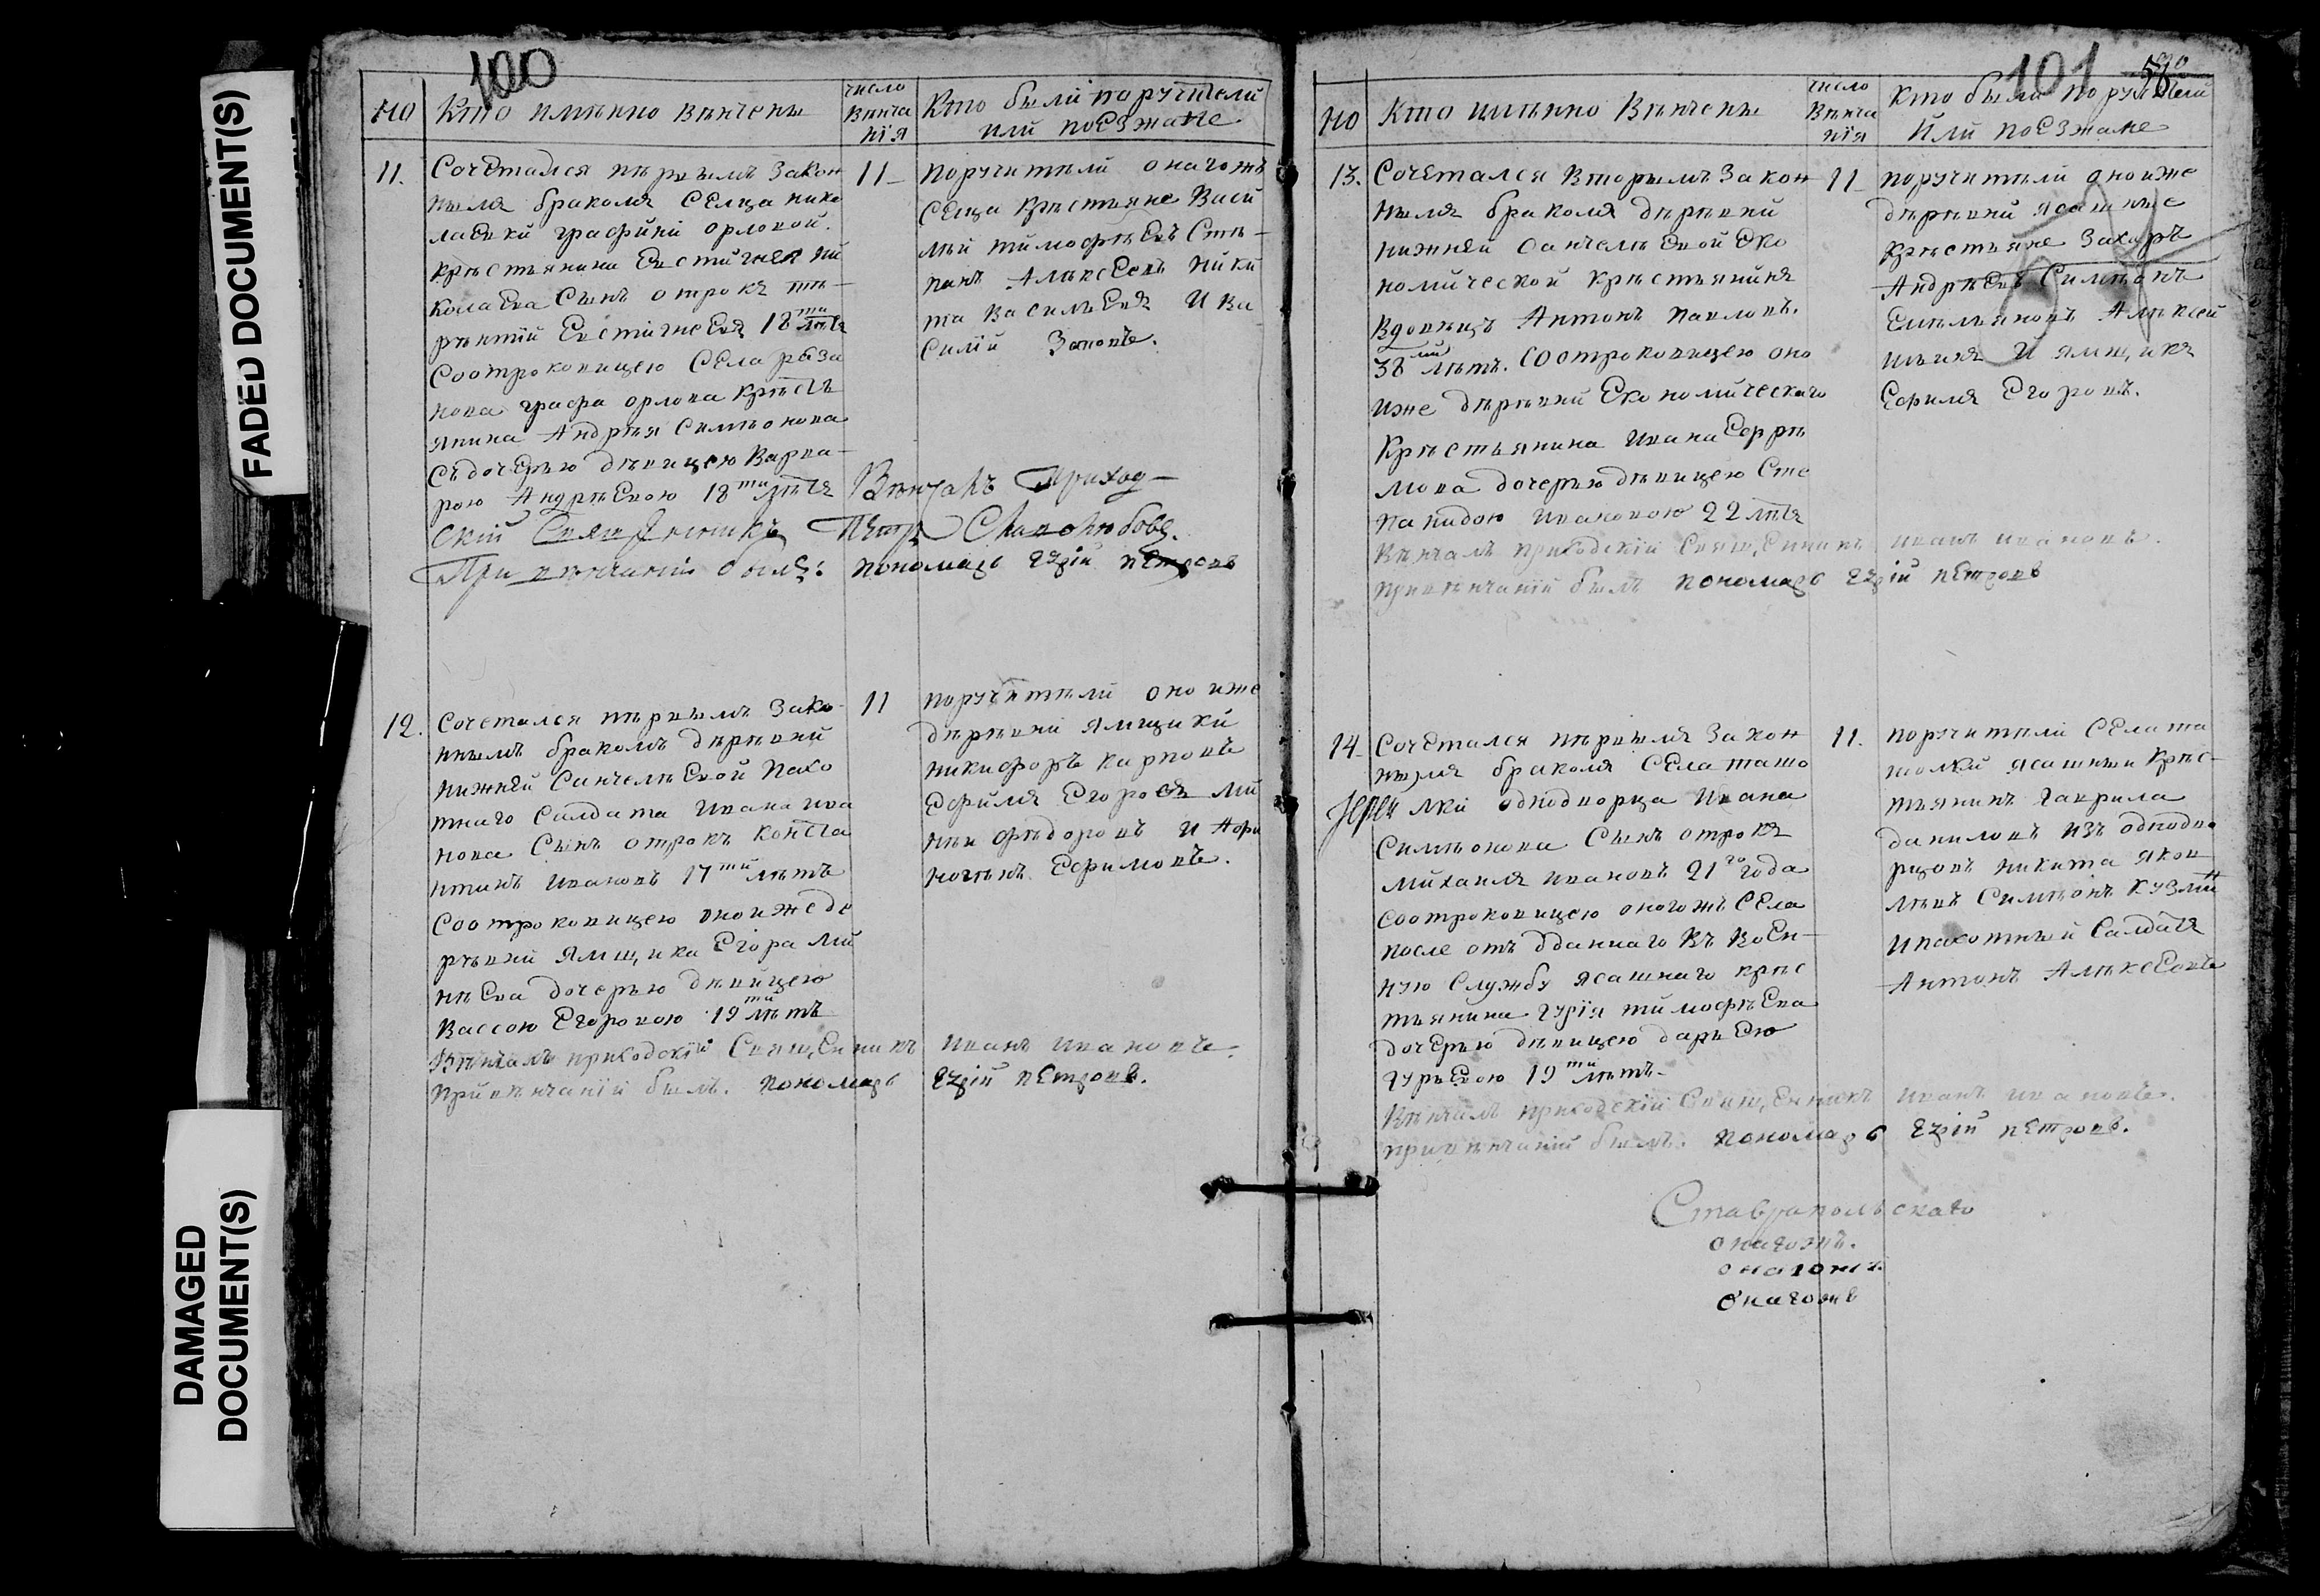 FADED DOCUMENT(S)
DAMAGED
DOCUMENT(S)
100
но
Кто имянно венчены
число
Венча
нїя
Кто были поручители
или поезжане
11.
Сочетался первымъ закон
нымъ бракомъ селца нико
лаевки графини орловой
крестьянина Евстигнея ни
колаева сынъ отрокъ те-
рентий Евстигнеевъ 18ти летъ
Соотроковицею села реза
нова графа орлова кресть
янина Андрея Симеонова
съдочерью девицею Варва-
рою Андреевою 18ти летъ
11
поручители оногожъ
селца крестьяне Васи
лий тимофеевъ Сте-
панъ Алексеевъ ники
та Васильевъ и Ва
силий Зотовъ.
Венчалъ Приход-
ский Священникъ Петръ Славолюбовъ.
При венчаний былъ: пономарь Егрій петровъ
12.
Сочетался первымъ зако-
ннымъ бракомъ деревни
нижней Санчелеевой Пахо
тнаго Салдата Ивана ива
нова Сынъ отрокъ Конста
нтинъ Ивановъ 17ти летъ
Соотроковицею оноижеде
ревни ямщика Егора ми
неева дочерью девицею
Вассою Егоровою 19ти летъ
11
поручители оноиже
деревни ямщики
никифоръ карповъ
Ефимъ Егоровъ ми
ней федоровъ и Афи
ногенъ Ефимовъ.
Венчалъ приходский Священникъ Иванъ Ивановъ.
при венчаний былъ. пономарь Егрій петровъ.
101
580
но
Кто имянно Венчены
число
Венча
нїя
Кто были поручители
Или поезжане
13.
Сочетался вторымъ закон
нымъ бракомъ деревни
нижней Санчелеевой Еко
номической крестьянинъ
вдовецъ Антонъ павловъ.
38ми летъ. Соотроковицею оно
иже деревни Економическаго
Крестьянина Ивана Ефре
мова дочерью девицею Сте
панидою Ивановою 22 летъ
11
поручители оноиже
деревни ясашные
крестьяне Захаръ
Андреевъ Симеонъ
Емельяновъ Алексей
ильинъ И ямщикъ
Ефимъ Егоровъ.
Венчалъ приходский Священникъ иванъ ивановъ.
при венчаний былъ пономарь Егрій петровъ
14
Сочетался первымъ закон
нымъ бракомъ села ташо
лки однодворца Ивана
Симеонова Сынъ отрокъ
михаилъ ивановъ 21го года
соотроковицею оногожъ села
после отъ Данного въ воен-
ную Службу ясашнаго крес
тьянина гурїя тимофеева
дочерью девицею дарьею
гурьевою 19ти летъ.
11.
поручители Села та
шолки ясашный крес-
тьянинъ гаврила
даниловъ изъ однодво
рцовъ никита яков
левъ Симеонъ Кузмин
ипахотный Салдатъ
Антонъ Алексеевъ
Венчалъ приходский Священникъ иванъ ивановъ.
при венчаний былъ. пономарь Егрій петровъ.
Ставрапольскаго
онагожъ.
онагожъ.
онагожъ